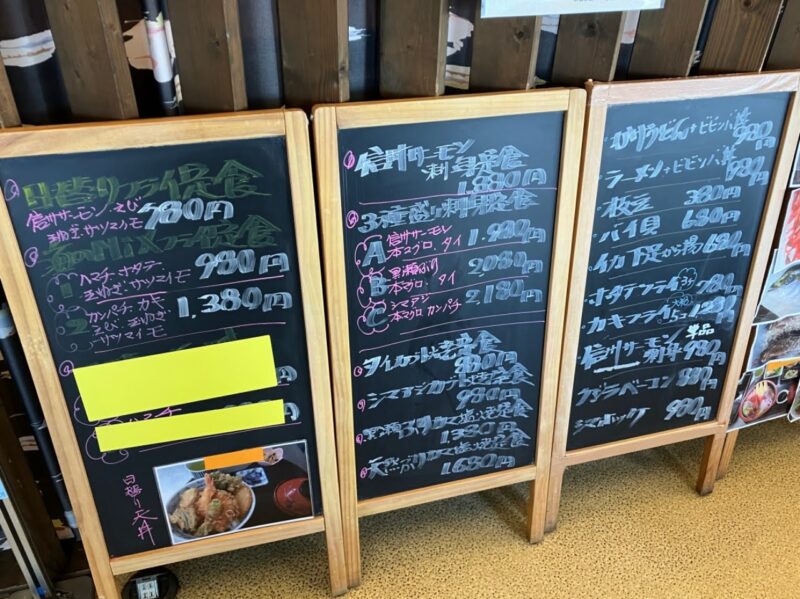 日替りフライ定食
信州サーモン、えび
玉ねぎ、サツマイモ
980円
フライ定食
1
ハマチ、ホタテ
玉ねぎ、サツマイモ
980円
2
カンパチ、カキ
えび、玉ねぎ
サツマイモ
1,380円
ハマチ
円
日替り天丼
信州サーモン
刺身定食
1,880円
3種盛り刺身定食
A 信州サーモン
本マグロ、タイ
1,980円
B 黒瀬ぶり
本マグロ、タイ
2080円
C シマアジ
本マグロ、カンパチ
2,180円
タイカブト塩焼き定食
980円
シマアジカブト塩焼き定食
980円
黒瀬ぶりカマ塩焼き定食
1380円
天然ぶりカマ塩焼き定食
1,680円
うどん+ビビンバ丼
980円
ラーメン+ビビンバ丼
980円
枝豆 380円
バイ貝 680円
イカ下足から揚 680円
ホタテフライ 3コ 780円
カキフライ 大粒 5コ 1280円
信州サーモン刺身 単品 980円
クジラベーコン 880円
シマホッケ 980円